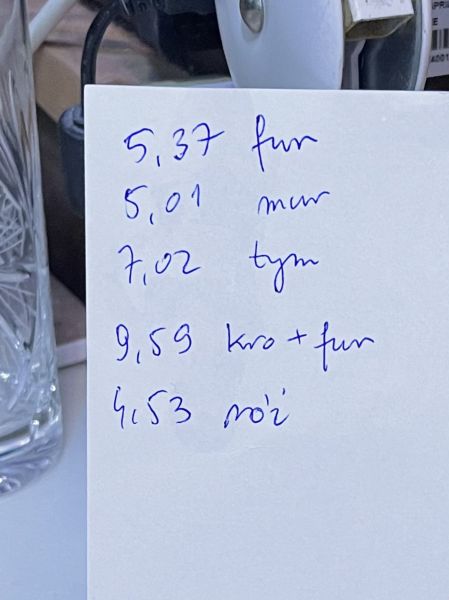 PRA
E
A001
5,37 fur
5,01 mur
7,02 tym
9,59 kro + fur
4,53 róż